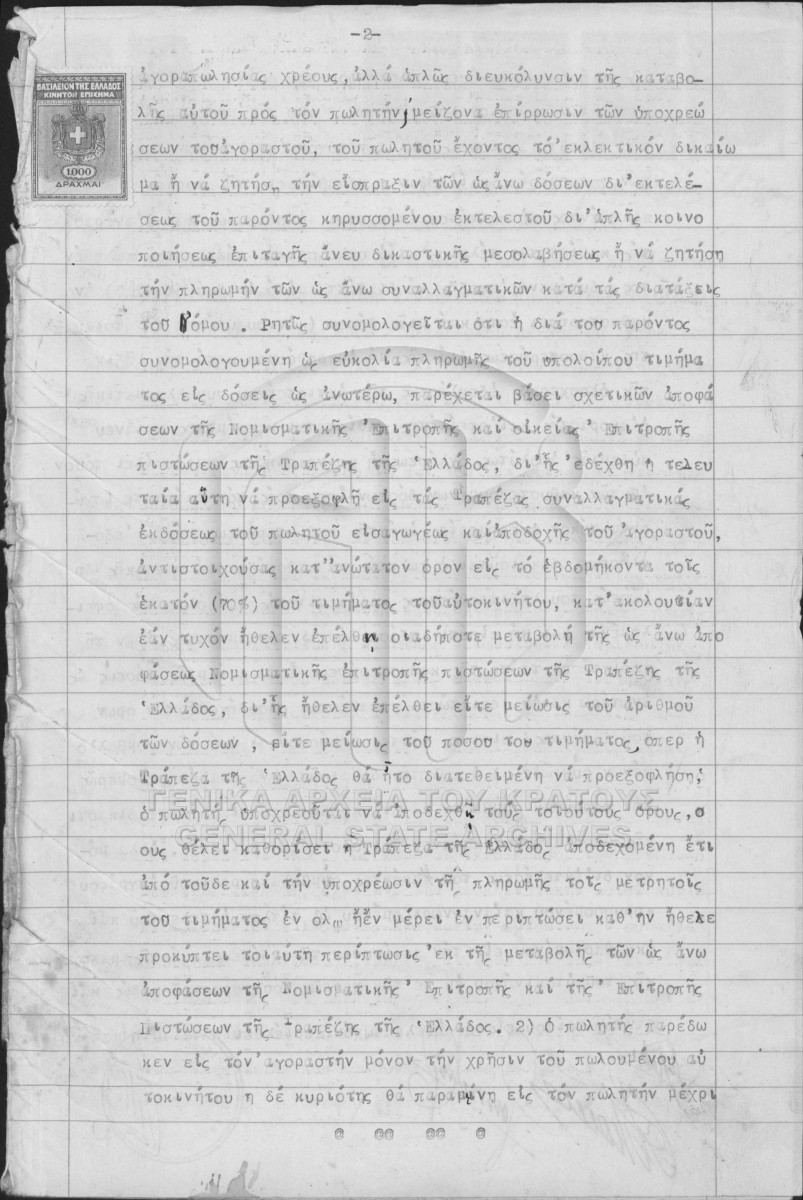 -2-
ΒΑΣΙΛΕΙΟΝ ΤΗΣ ΕΛΛΑΔΟΣ
ΚΙΝΗΤΟΝ ΕΠΙΣΗΜΑ
1000
ΔΡΑΧΜΑΙ
ἀγοραπωλησίας χρέους, ἀλλά ἁπλῶς διευκόλυνσιν τῆς καταβο-
λῆς αὐτοῦ πρός τόν πωλητήν, μείζονα ἐπίρρωσιν τῶν ὑποχρεώ
σεων τουἀγοραστοῦ, τοῦ πωλητοῦ ἔχοντος τό ἐκλεκτικόν δικαίω
μα ἤ νά ζητήσῃ τήν εἴσπραξιν τῶν ὡς ἄνω δόσεων δι'ἐκτελέ-
σεως τοῦ παρόντος κηρυσσομένου ἐκτελεστοῦ δι'ἁπλῆς κοινο
ποιήσεως ἐπιταγῆς ἄνευ δικαστικῆς μεσολαβήσεως ἤ νά ζητήση
τήν πληρωμήν τῶν ὡς ἄνω συναλλαγματικῶν κατά τάς διατάξεις
τοῦ Νόμου. Ρητῶς συνομολογεῖται ὅτι ἡ διά του παρόντος
συνομολογουμένη ὡς εὐκολία πληρωμῆς τοῦ υπολοίπου τιμήμα
τος εἰς δόσεις ὡς ἀνωτέρω, παρέχεται βάσει σχετικῶν ἀποφά
σεων τῆς Νομισματικῆς Ἐπιτροπῆς καί οἰκείας Ἐπιτροπῆς
πιστώσεων τῆς Τραπέζης τῆς Ἑλλάδος, δι'ἧς ἐδέχθη ἡ τελευ
ταία αὕτη νά προεξοφλῆ εἰς τάς Τραπέζας συναλλαγματικάς
ἐκδόσεως τοῦ πωλητοῦ εἰσαγωγέως καιἀποδοχῆς τοῦ ἀγοραστοῦ,
ἀντιστοιχούσας κατ' ἀνώτατον ὅρον εἰς τό ἑβδομήκοντα τοῖς
ἑκατόν (70%) τοῦ τιμήματος τοῦαὐτοκινήτου, κατ'ακολουθίαν
ἐάν τυχόν ἤθελεν ἐπέλθη οιαδήποτε μεταβολή τῆς ὡς ἄνω ἀπο
φάσεως Νομισματικῆς ἐπιτροπῆς πιστώσεων τῆς Τραπέζης τῆς
Ἑλλάδος, δι'ἧς ἤθελεν ἐπέλθει εἴτε μείωσις τοῦ ἀριθμοῦ
τῶν δόσεων, εἴτε μείωσις τοῦ ποσου του τιμήματος, οπερ ἡ
Τράπεζα τῆς Ἑλλάδος θά ἦτο διατεθειμένη νά προεξοφλήση,
ὁ πωλητής υποχρεοῦται νά ἀποδεχθῆ τούς τοιούτους ὅρους, ο
ους θέλει καθορίσει η Τράπεζα τῆς Ἑλλάδος ἀποδεχομένη ἔτι
ἀπό τοῦδε καί τήν υποχρέωσιν τῆς πληρωμῆς τοῖς μετρητοῖς
τοῦ τιμήματος ἐν ολω ἤἐν μέρει ἐν περιπτώσει καθ'ἥν ἤθελε
προκύπτει τοιαύτη περίπτωσις ἐκ τῆς μεταβολῆς τῶν ὡς ἄνω
ἀποφάσεων τῆς Νομισματικῆς Ἐπιτροπῆς καί τῆς Ἐπιτροπῆς
Πιστώσεων τῆς Τραπέζης τῆς Ἑλλάδος. 2) ὁ πωλητής παρέδω
κεν εἰς τόν ἀγοραστήν μόνον τήν χρῆσιν τοῦ πωλουμένου αὐ
τοκινήτου η δέ κυριότης θά παραμένη εἰς τόν πωλητήν μέχρι
@ @@ @@ @
ΓΕΝΙΚΑ ΑΡΧΕΙΑ ΤΟΥ ΚΡΑΤΟΥΣ
GENERAL STATE ARCHIVES